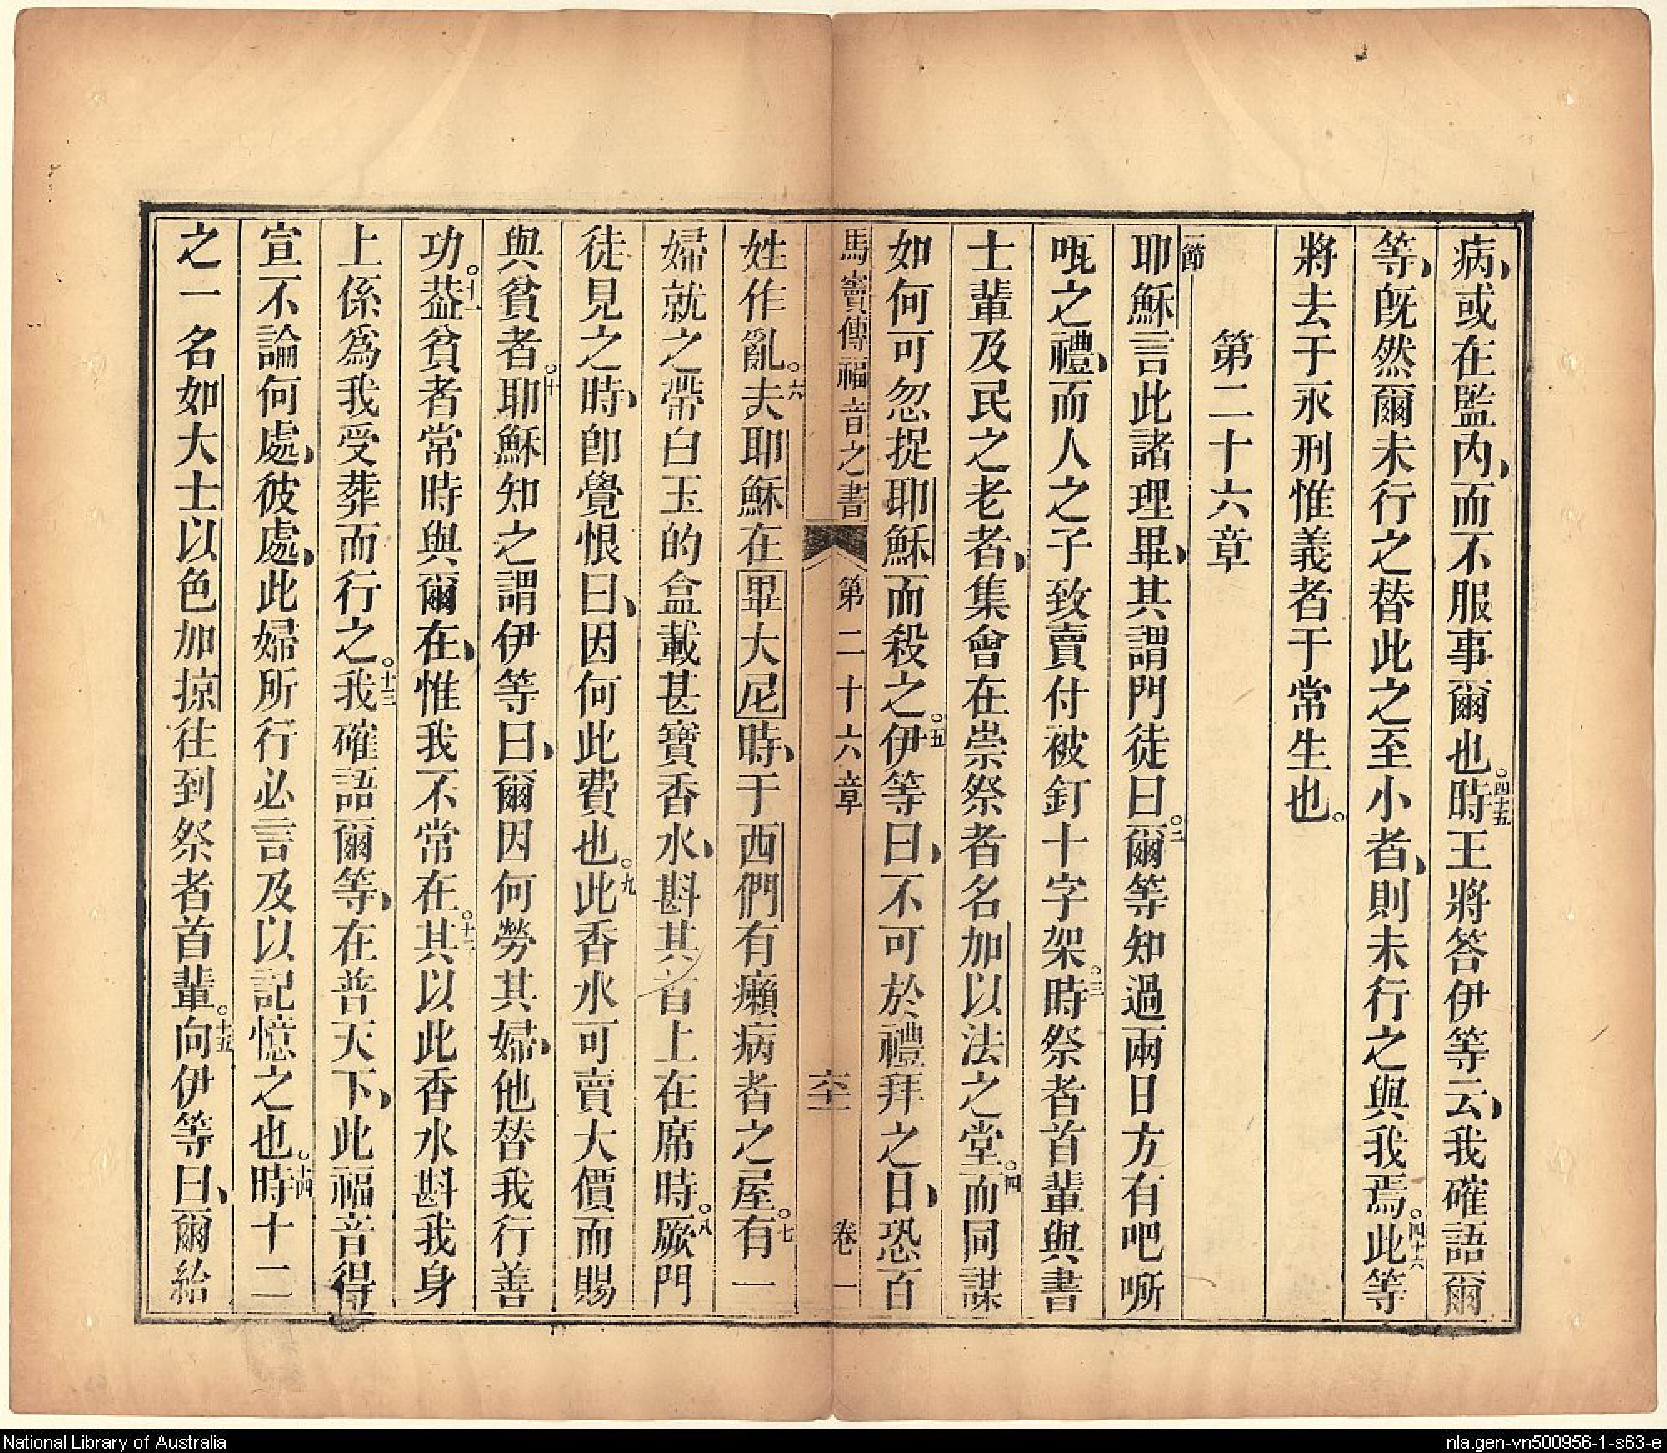 病、或在監內、而不服事爾也。四十五時王將答伊等云、我確語爾
等、旣然爾未行之替此之至小者、則未行之與我焉。四十六此等
將去于永刑惟義者于常生也。
第二十六章
一節耶穌言此諸理畢、其謂門徒曰。二爾等知過兩日方有吧㗭
㖇之禮、而人之子致賣付被釘十字架。三時祭者首輩與書
士輩及民之老者、集會在崇祭者名加以法之堂。四而同謀
如何可忽捉耶穌而殺之。五伊等曰、不可於禮拜之日、恐百
馬竇傳福音之書 第二十六章 卷一
姓作亂。六夫耶穌在畢大尼時、于西們有癩病者之屋。七有一
婦就之帶白玉的盒載甚寶香水、斟其首上在席時。八厥門
徒見之時、卽覺恨曰、因何此費也。九此香水可賣大價而賜
與貧者。十耶穌知之謂伊等曰、爾因何勞其婦、他替我行善
功。十一葢貧者常時與爾在、惟我不常在。十二其以此香水斟我身
上係為我受葬而行之。十三我確語爾等、在普天下、此福音得
宣不論何處、彼處、此婦所行必言及以記憶之也。十四時十二
之一名如大士以色加掠往到祭者首輩。十五向伊等曰、爾給
National Library of Australia
nla.gen-vn500956-1-s63-e